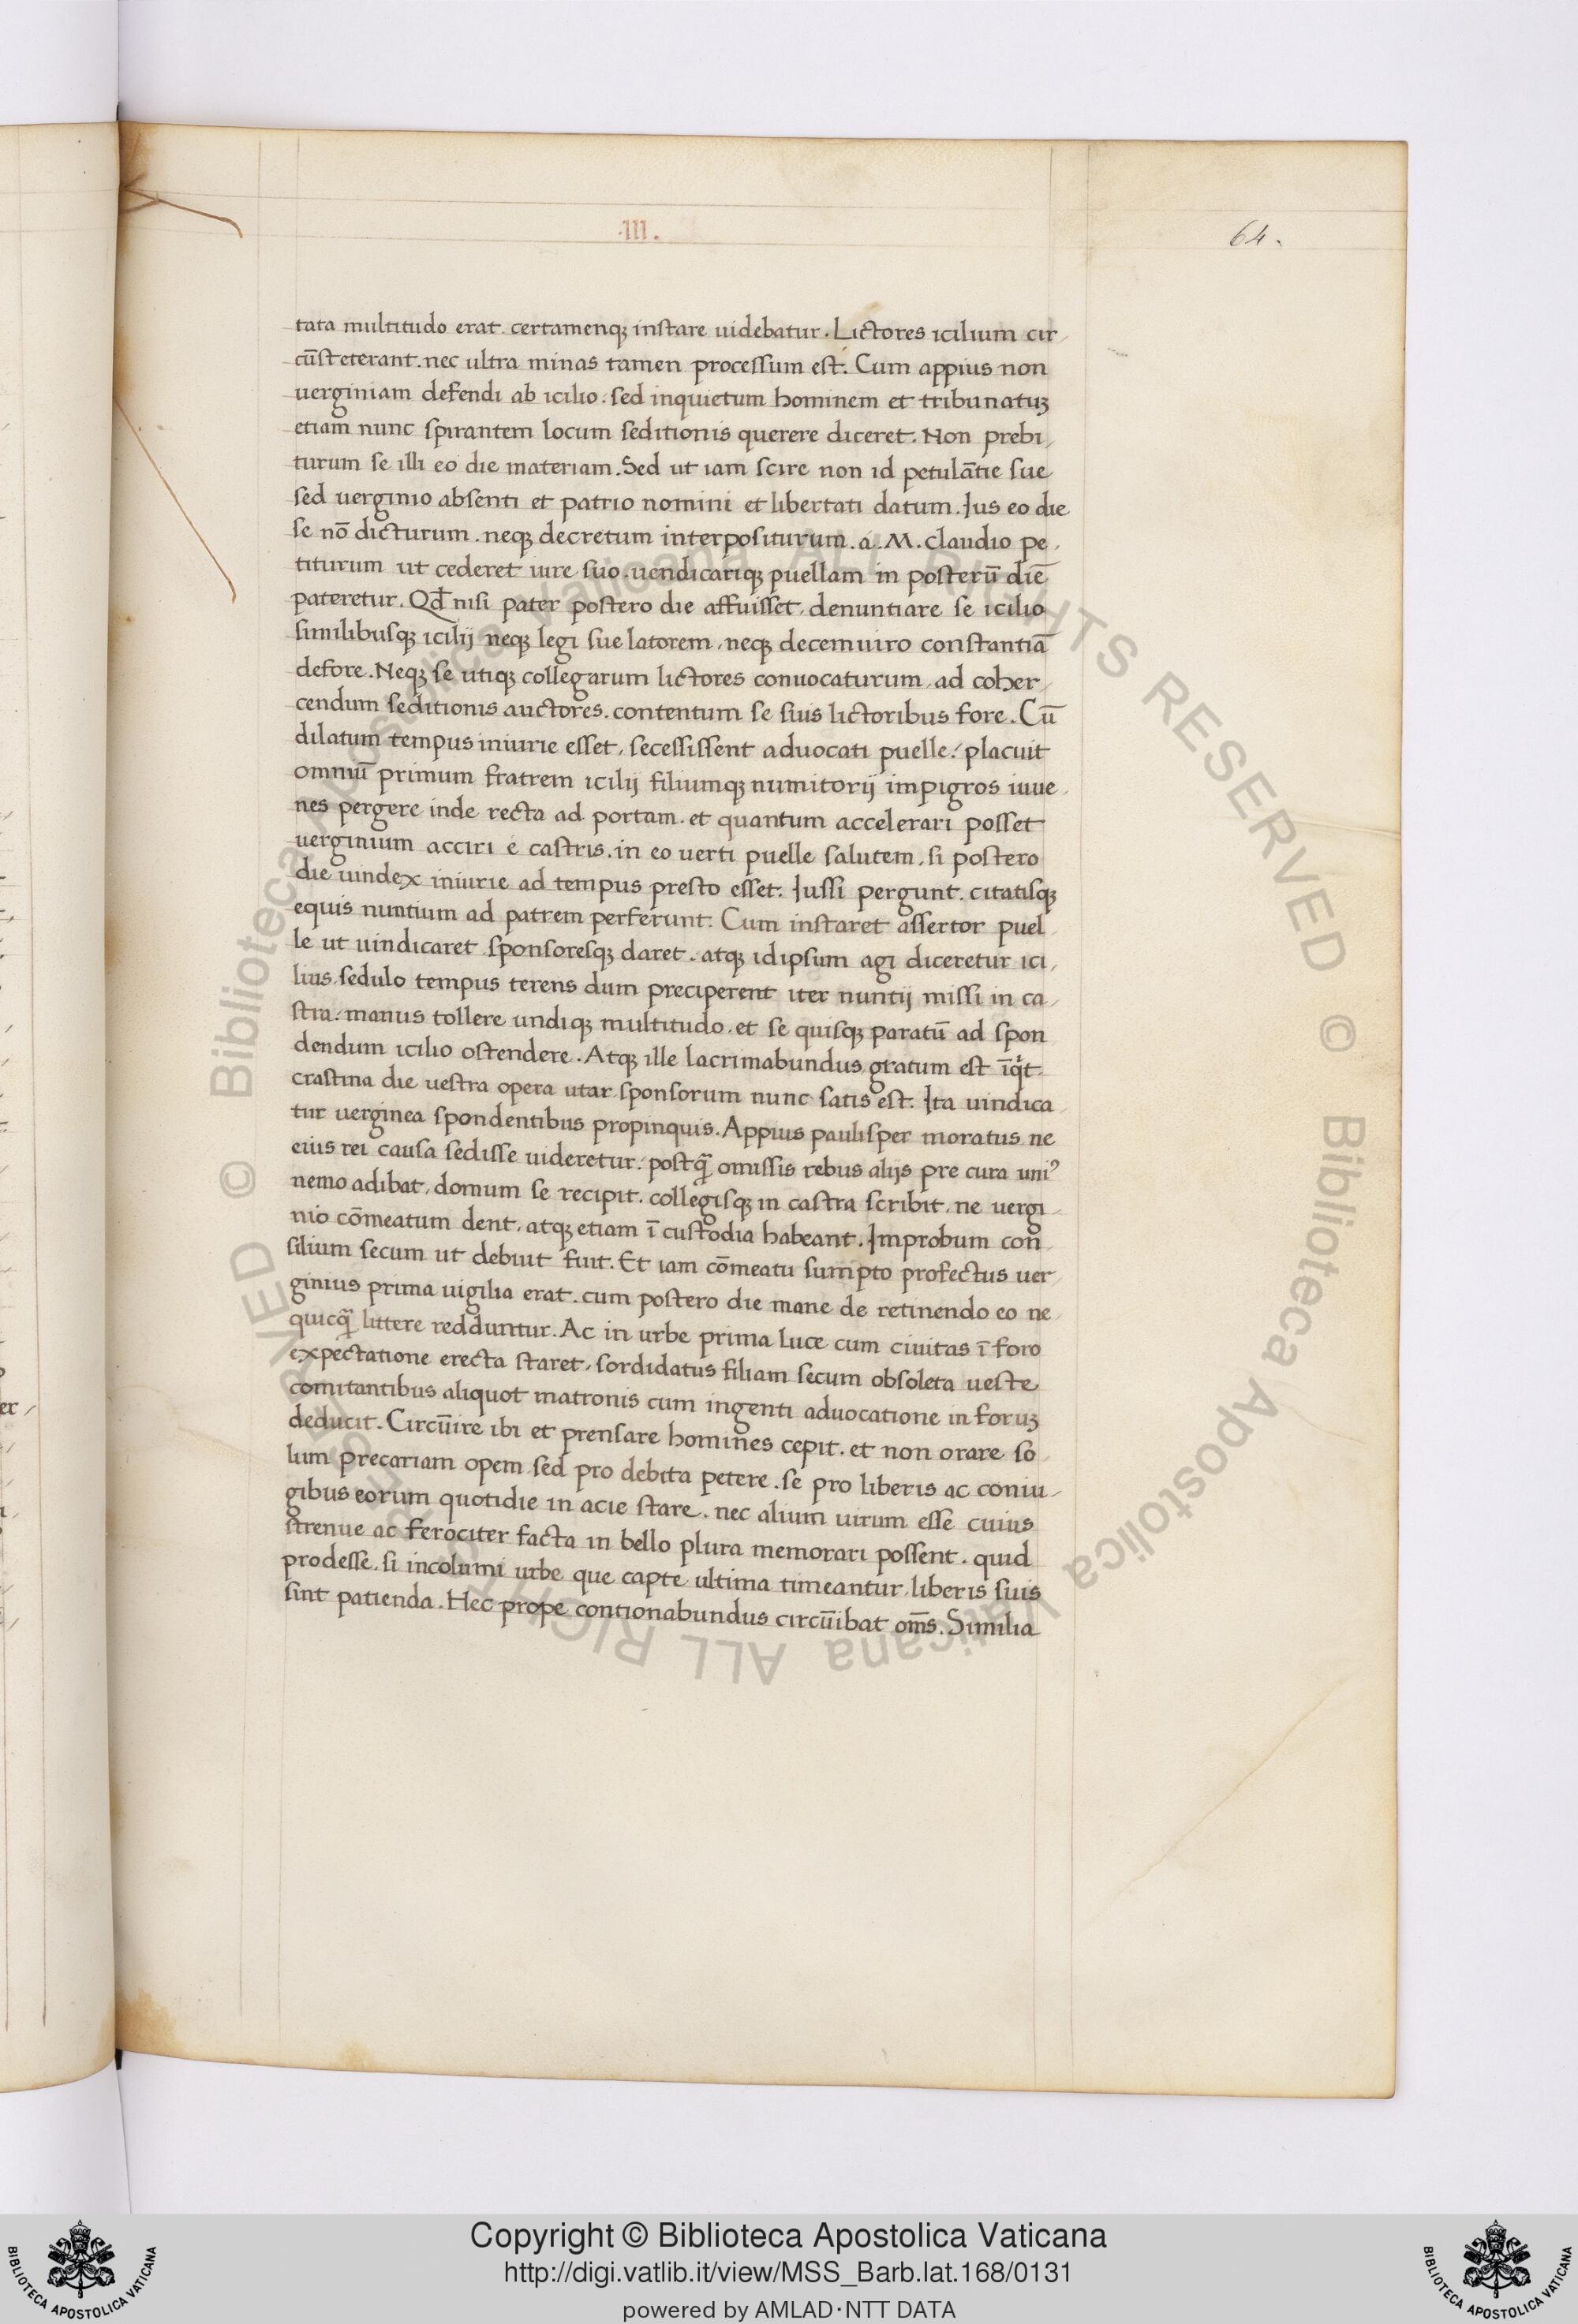 .III.
64.
tata multitudo erat. certamenqꝫ instare uidebatur. Lictores icilium cir
cũsteterant. nec ultra minas tamen processum est. Cum appius non
uerginiam defendi ab icilio. sed inquietum hominem et tribunatuꝫ
etiam nunc spirantem locum seditionis querere diceret. Non prebi,
turum se illi eo die materiam. Sed ut iam scire non id petulãtie sue
sed uerginio absenti et patrio nomini et libertati datum. Ius eo die
se nõ dicturum. neqꝫ decretum interpositurum. a. M. claudio pe,
titurum ut cederet iure suo. uendicariqꝫ puellam in posterũ diẽ
pateretur. Qđ nisi pater postero die affuisset. denuntiare se icilio
similibusqꝫ icilij neqꝫ legi sue latorem, neqꝫ decemuiro constantiã
defore. Neqꝫ se utiqꝫ collegarum lictores conuocaturum, ad coher,
cendum seditionis auctores. contentum se suis lictoribus fore. Cũ
dilatum tempus iniurie esset, secessissent aduocati puelle. placuit
omniũ primum fratrem icilij filiumqꝫ numitorij impigros iuue,
nes pergere inde recta ad portam. et quantum accelerari posset
uerginium acciri e castris. in eo uerti puelle salutem, si postero
die uindex iniurie ad tempus presto esset. Iussi pergunt. citatisqꝫ
equis nuntium ad patrem perferunt. Cum instaret assertor puel
le ut uindicaret sponsoresqꝫ daret. atqꝫ idipsum agi diceretur ici,
lius sedulo tempus terens dum preciperent iter nuntij missi in ca,
stra. manus tollere undiqꝫ multitudo. et se quisqꝫ paratũ ad spon
dendum icilio ostendere. Atqꝫ ille lacrimabundus gratum est ĩqͥt.
crastina die uestra opera utar sponsorum nunc satis est. Ita uindica,
tur uerginea spondentibus propinquis. Appius paulisper moratus ne
eius rei causa sedisse uideretur. postqᷓ omissis rebus alijs pre cura uniꝰ
nemo adibat, domum se recipit. collegisqꝫ in castra scribit. ne uergi,
nio cõmeatum dent, atqꝫ etiam ĩ custodia habeant. Improbum con
silium secum ut debuit fuit. Et iam cõmeatu sumpto profectus uer,
ginius prima uigilia erat. cum postero die mane de retinendo eo ne,
quicqᷓ littere redduntur. Ac in urbe prima luce cum ciuitas ĩ foro
expectatione erecta staret, sordidatus filiam secum obsoleta ueste
comitantibus aliquot matronis cum ingenti aduocatione in foruꝫ
deducit. Circũire ibi et prensare homines cepit. et non orare so,
lum precariam opem sed pro debita petere. se pro liberis ac coniu,
gibus eorum quotidie in acie stare. nec alium uirum esse cuius
strenue ac ferociter facta in bello plura memorari possent. quid
prodesse, si incolumi urbe que capte ultima timeantur, liberis suis
sint patienda. Hec prope contionabundus circũibat om̃s. Similia
Copyright © Biblioteca Apostolica Vaticana
http://digi.vatlib.it/view/MSS_Barb.lat.168/0131
powered by AMLAD·NTT DATA
BIBLIOTECA APOSTOLICA VATICANA
BIBLIOTECA APOSTOLICA VATICANA
© Biblioteca Apostolica Vaticana ALL RIGHTS RESERVED © Biblioteca Apostolica Vaticana ALL RIGHTS RESERVED